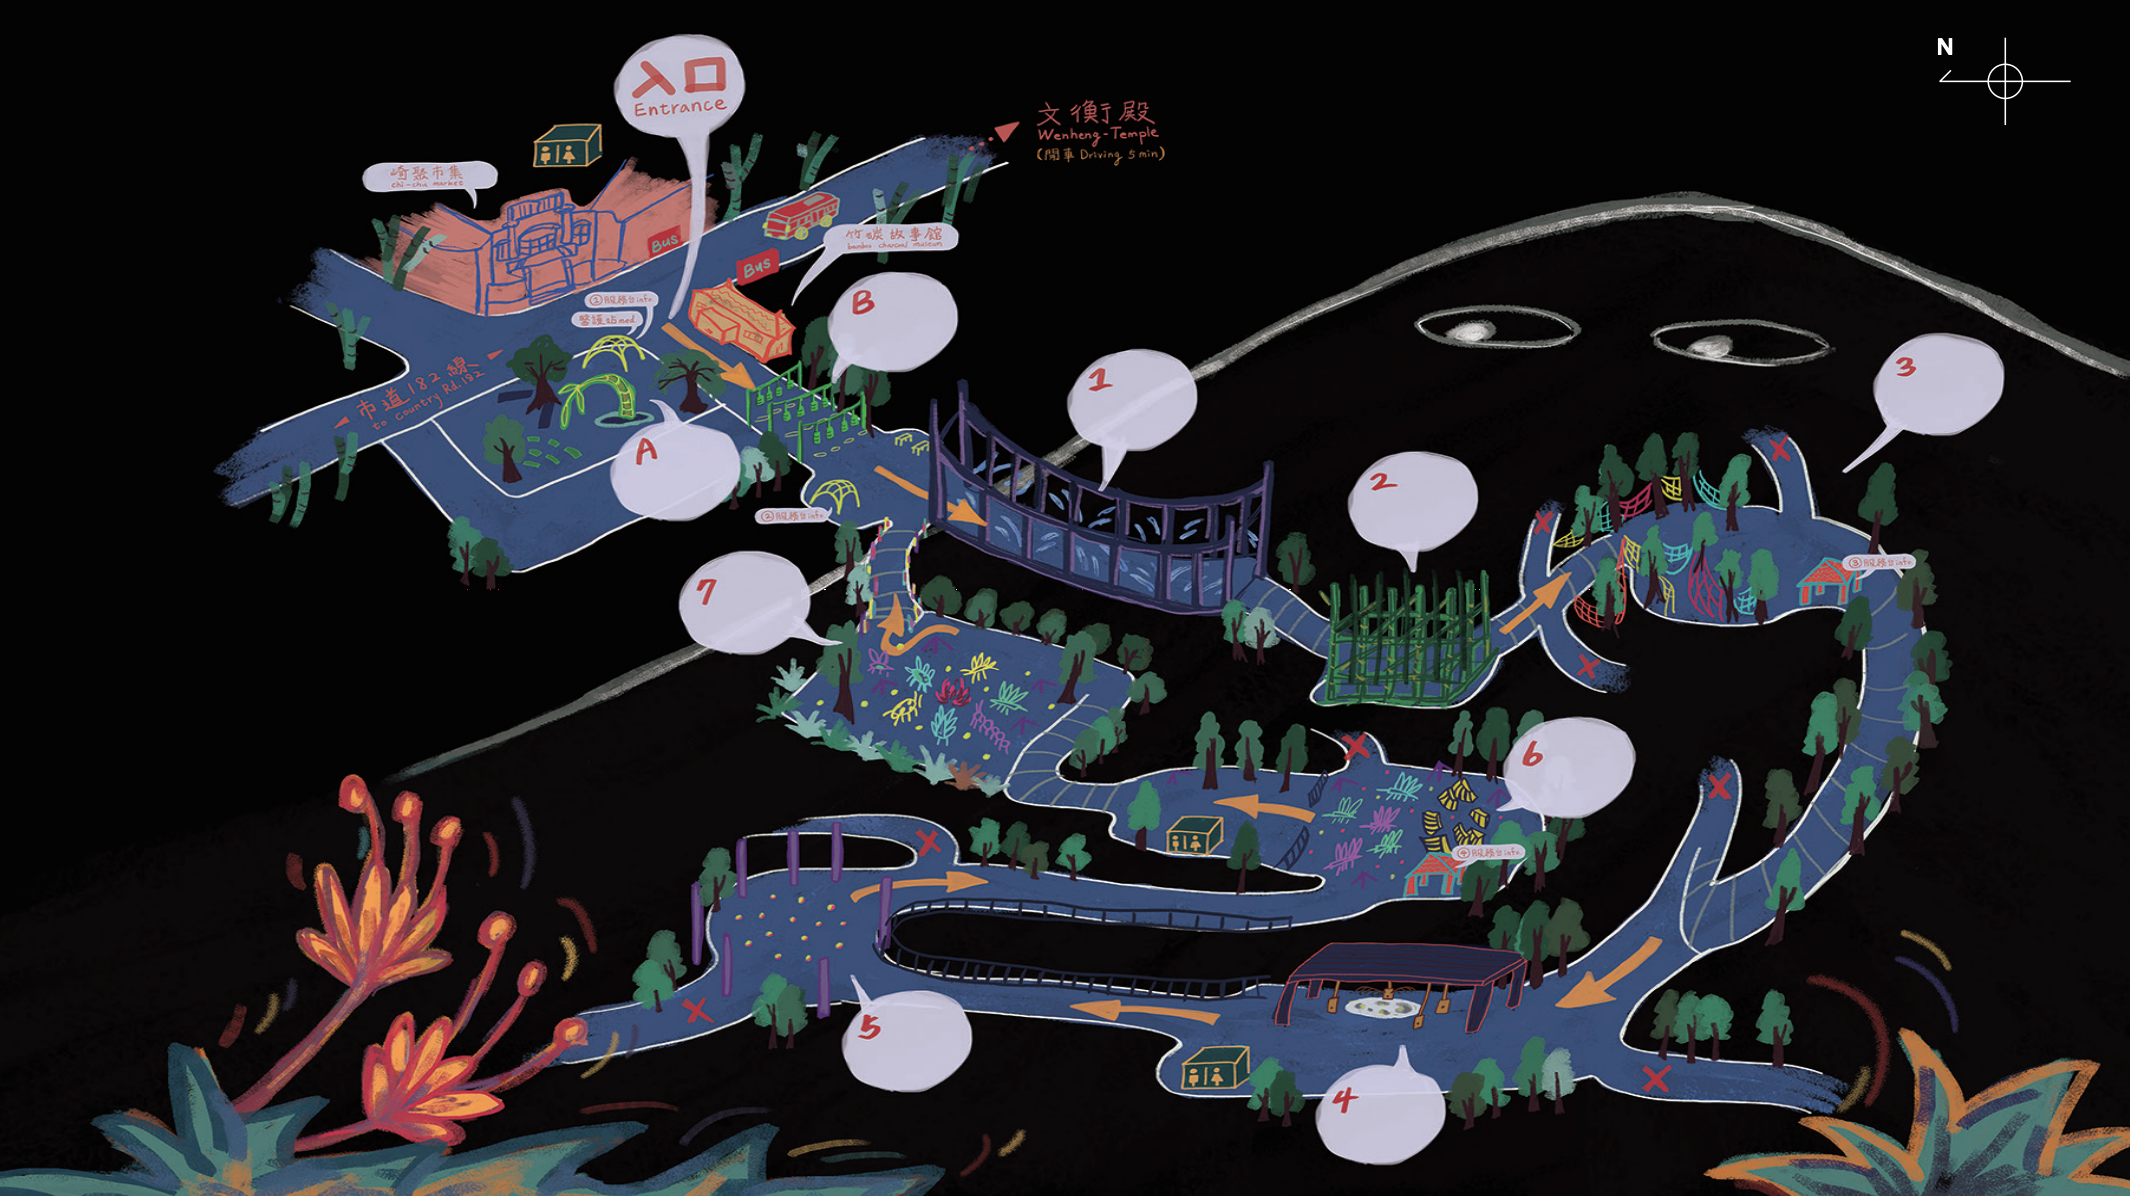 N
入口
Entrance
文衡殿
Wenheng-Temple
(開車 Driving 5 min)
崎聚市集
chi-chu market
Bus
竹炭故事館
bamboo charcoal museum
Bus
①服務台info.
醫護站med.
B
市道182線
to country Rd.182
1
3
A
2
②服務台info.
③服務台info.
7
6
④服務台info.
5
4